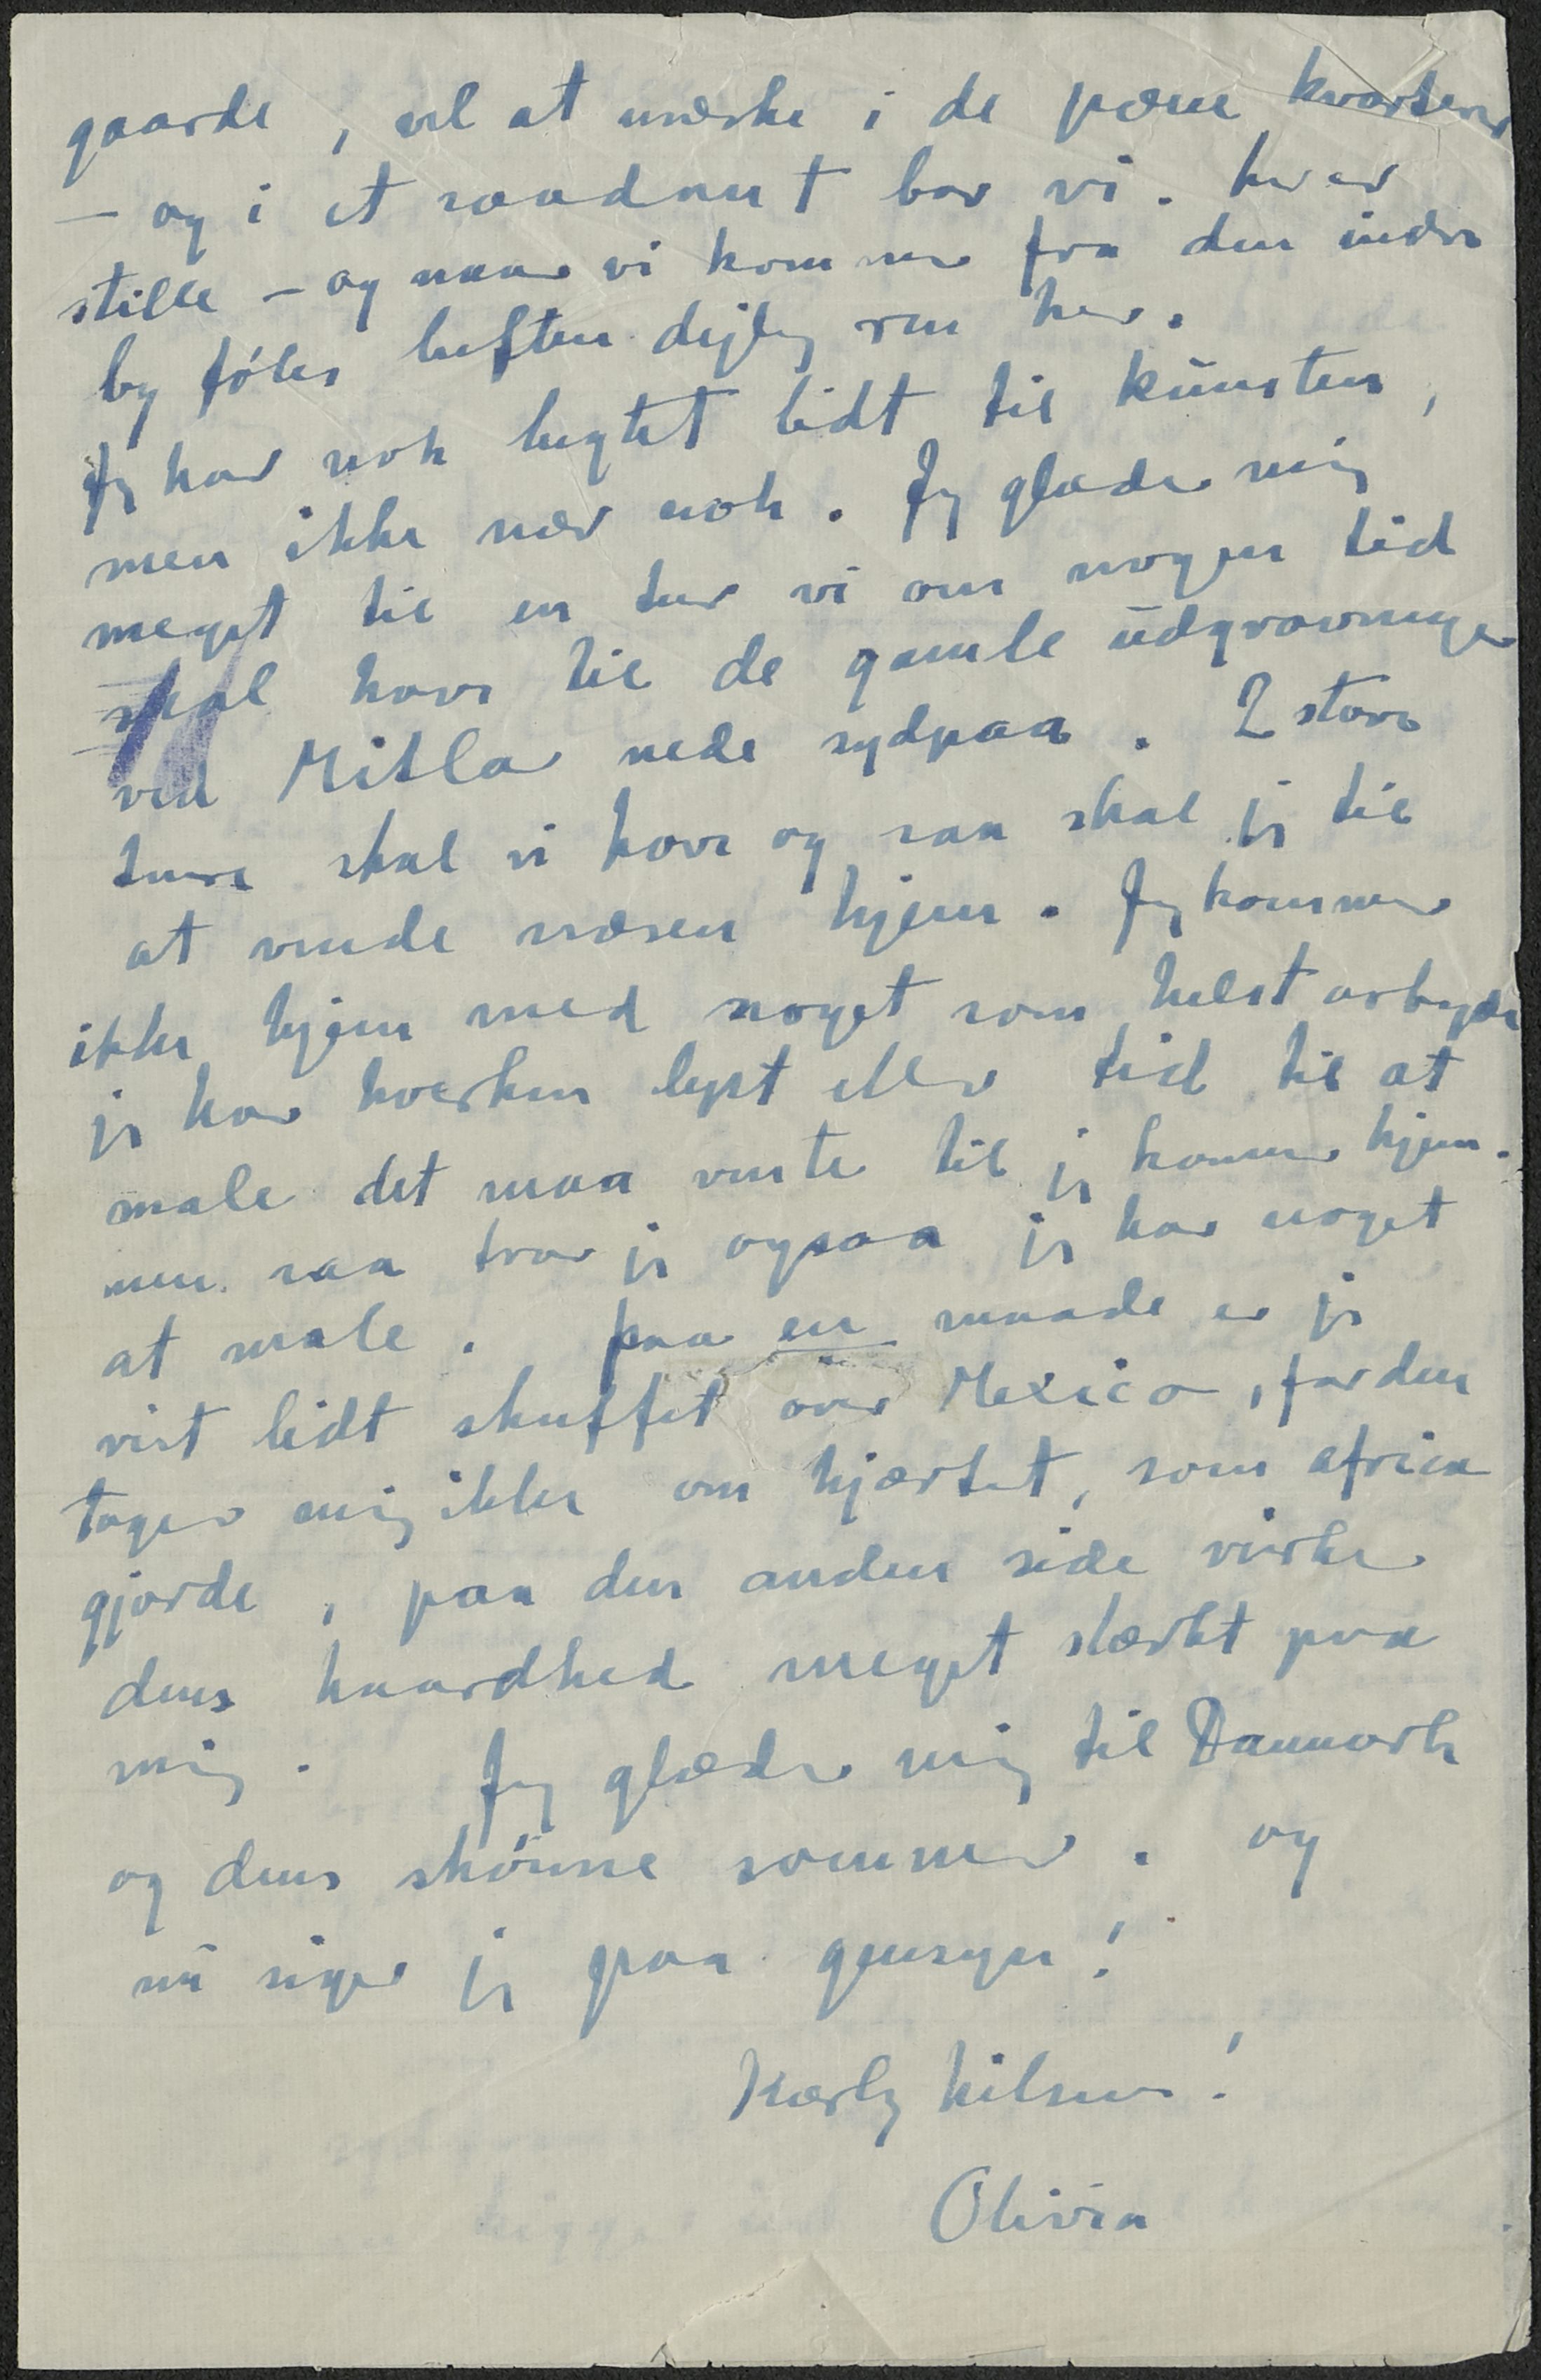 gaarde, vel at mærke i de pæne kvarterer
– og i et saadant bor vi. her er
stille – og naar vi kommer fra den indre
by føles luften dejlig ren her.
Jeg har nok lugtet lidt til kunsten,
men ikke nær nok. Jeg glæder mig
meget til en tur vi om nogen tid
skal have til de gamle udgravninger
ved Mitla nede sydpaa. 2 store
ture skal vi have og saa skal jeg til
at vende næsen hjem. Jeg kommer
ikke hjem med noget som helst arbejde
jeg har hverken lyst eller tid til at
male det maa vente til jeg kommer hjem.
men saa tror jeg ogsaa jeg har noget
at male. paa en maade er jeg
vist lidt skuffet over Mexico, for den
tager mig ikke om hjærtet, som africa
gjorde, paa den anden side virker
dens haardhed meget stærkt paa
mig. Jeg glæder mig til Danmark
og dens skønne sommer. og
nu siger jeg paa gensyn!
Kærlig hilsen!
Olivia